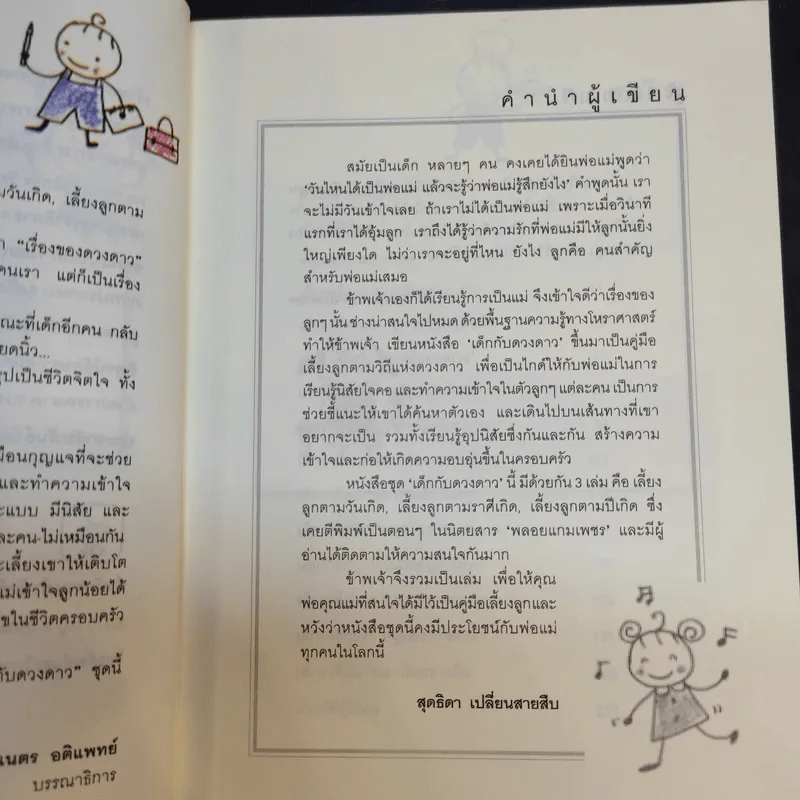 วันเกิด, เลี้ยงลูกตาม
"เรื่องของดวงดาว"
คนเรา แต่ก็เป็นเรื่อง
ณะที่เด็กอีกคน กลับ
ยดนิ้ว...
รุปเป็นชีวิตจิตใจ ทั้ง
มือนกุญแจที่จะช่วย
และทำความเข้าใจ
ะแบบ มีนิสัย และ
ละคน-ไม่เหมือนกัน
ะเลี้ยงเขาให้เติบโต
แม่เข้าใจลูกน้อยได้
ขในชีวิตครอบครัว
กับดวงดาว" ชุดนี้
เนตร อติแพทย์
บรรณาธิการ
คำนำผู้เขียน
สมัยเป็นเด็ก หลายๆ คน คงเคยได้ยินพ่อแม่พูดว่า
'วันไหนได้เป็นพ่อแม่ แล้วจะรู้ว่าพ่อแม่รู้สึกยังไง' คำพูดนั้น เรา
จะไม่มีวันเข้าใจเลย ถ้าเราไม่ได้เป็นพ่อแม่ เพราะเมื่อวินาที
แรกที่เราได้อุ้มลูก เราถึงได้รู้ว่าความรักที่พ่อแม่มีให้ลูกนั้นยิ่ง
ใหญ่เพียงใด ไม่ว่าเราจะอยู่ที่ไหน ยังไง ลูกคือ คนสำคัญ
สำหรับพ่อแม่เสมอ
ข้าพเจ้าเองก็ได้เรียนรู้การเป็นแม่ จึงเข้าใจดีว่าเรื่องของ
ลูกๆ นั้น ช่างน่าสนใจไปหมด ด้วยพื้นฐานความรู้ทางโหราศาสตร์
ทำให้ข้าพเจ้า เขียนหนังสือ 'เด็กกับดวงดาว' ขึ้นมาเป็นคู่มือ
เลี้ยงลูกตามวิถีแห่งดวงดาว เพื่อเป็นไกด์ให้กับพ่อแม่ในการ
เรียนรู้นิสัยใจคอ และทำความเข้าใจในตัวลูกๆ แต่ละคน เป็นการ
ช่วยชี้แนะให้เขาได้ค้นหาตัวเอง และเดินไปบนเส้นทางที่เขา
อยากจะเป็น รวมทั้งเรียนรู้อุปนิสัยซึ่งกันและกัน สร้างความ
เข้าใจและก่อให้เกิดความอบอุ่นขึ้นในครอบครัว
หนังสือชุด 'เด็กกับดวงดาว' นี้ มีด้วยกัน 3 เล่ม คือ เลี้ยง
ลูกตามวันเกิด, เลี้ยงลูกตามราศีเกิด, เลี้ยงลูกตามปีเกิด ซึ่ง
เคยตีพิมพ์เป็นตอนๆ ในนิตยสาร 'พลอยแกมเพชร' และมีผู้
อ่านได้ติดตามให้ความสนใจกันมาก
ข้าพเจ้าจึงรวมเป็นเล่ม เพื่อให้คุณ
พ่อคุณแม่ที่สนใจได้มีไว้เป็นคู่มือเลี้ยงลูกและ
หวังว่าหนังสือชุดนี้คงมีประโยชน์กับพ่อแม่
ทุกคนในโลกนี้
สุดธิดา เปลี่ยนสายสืบ